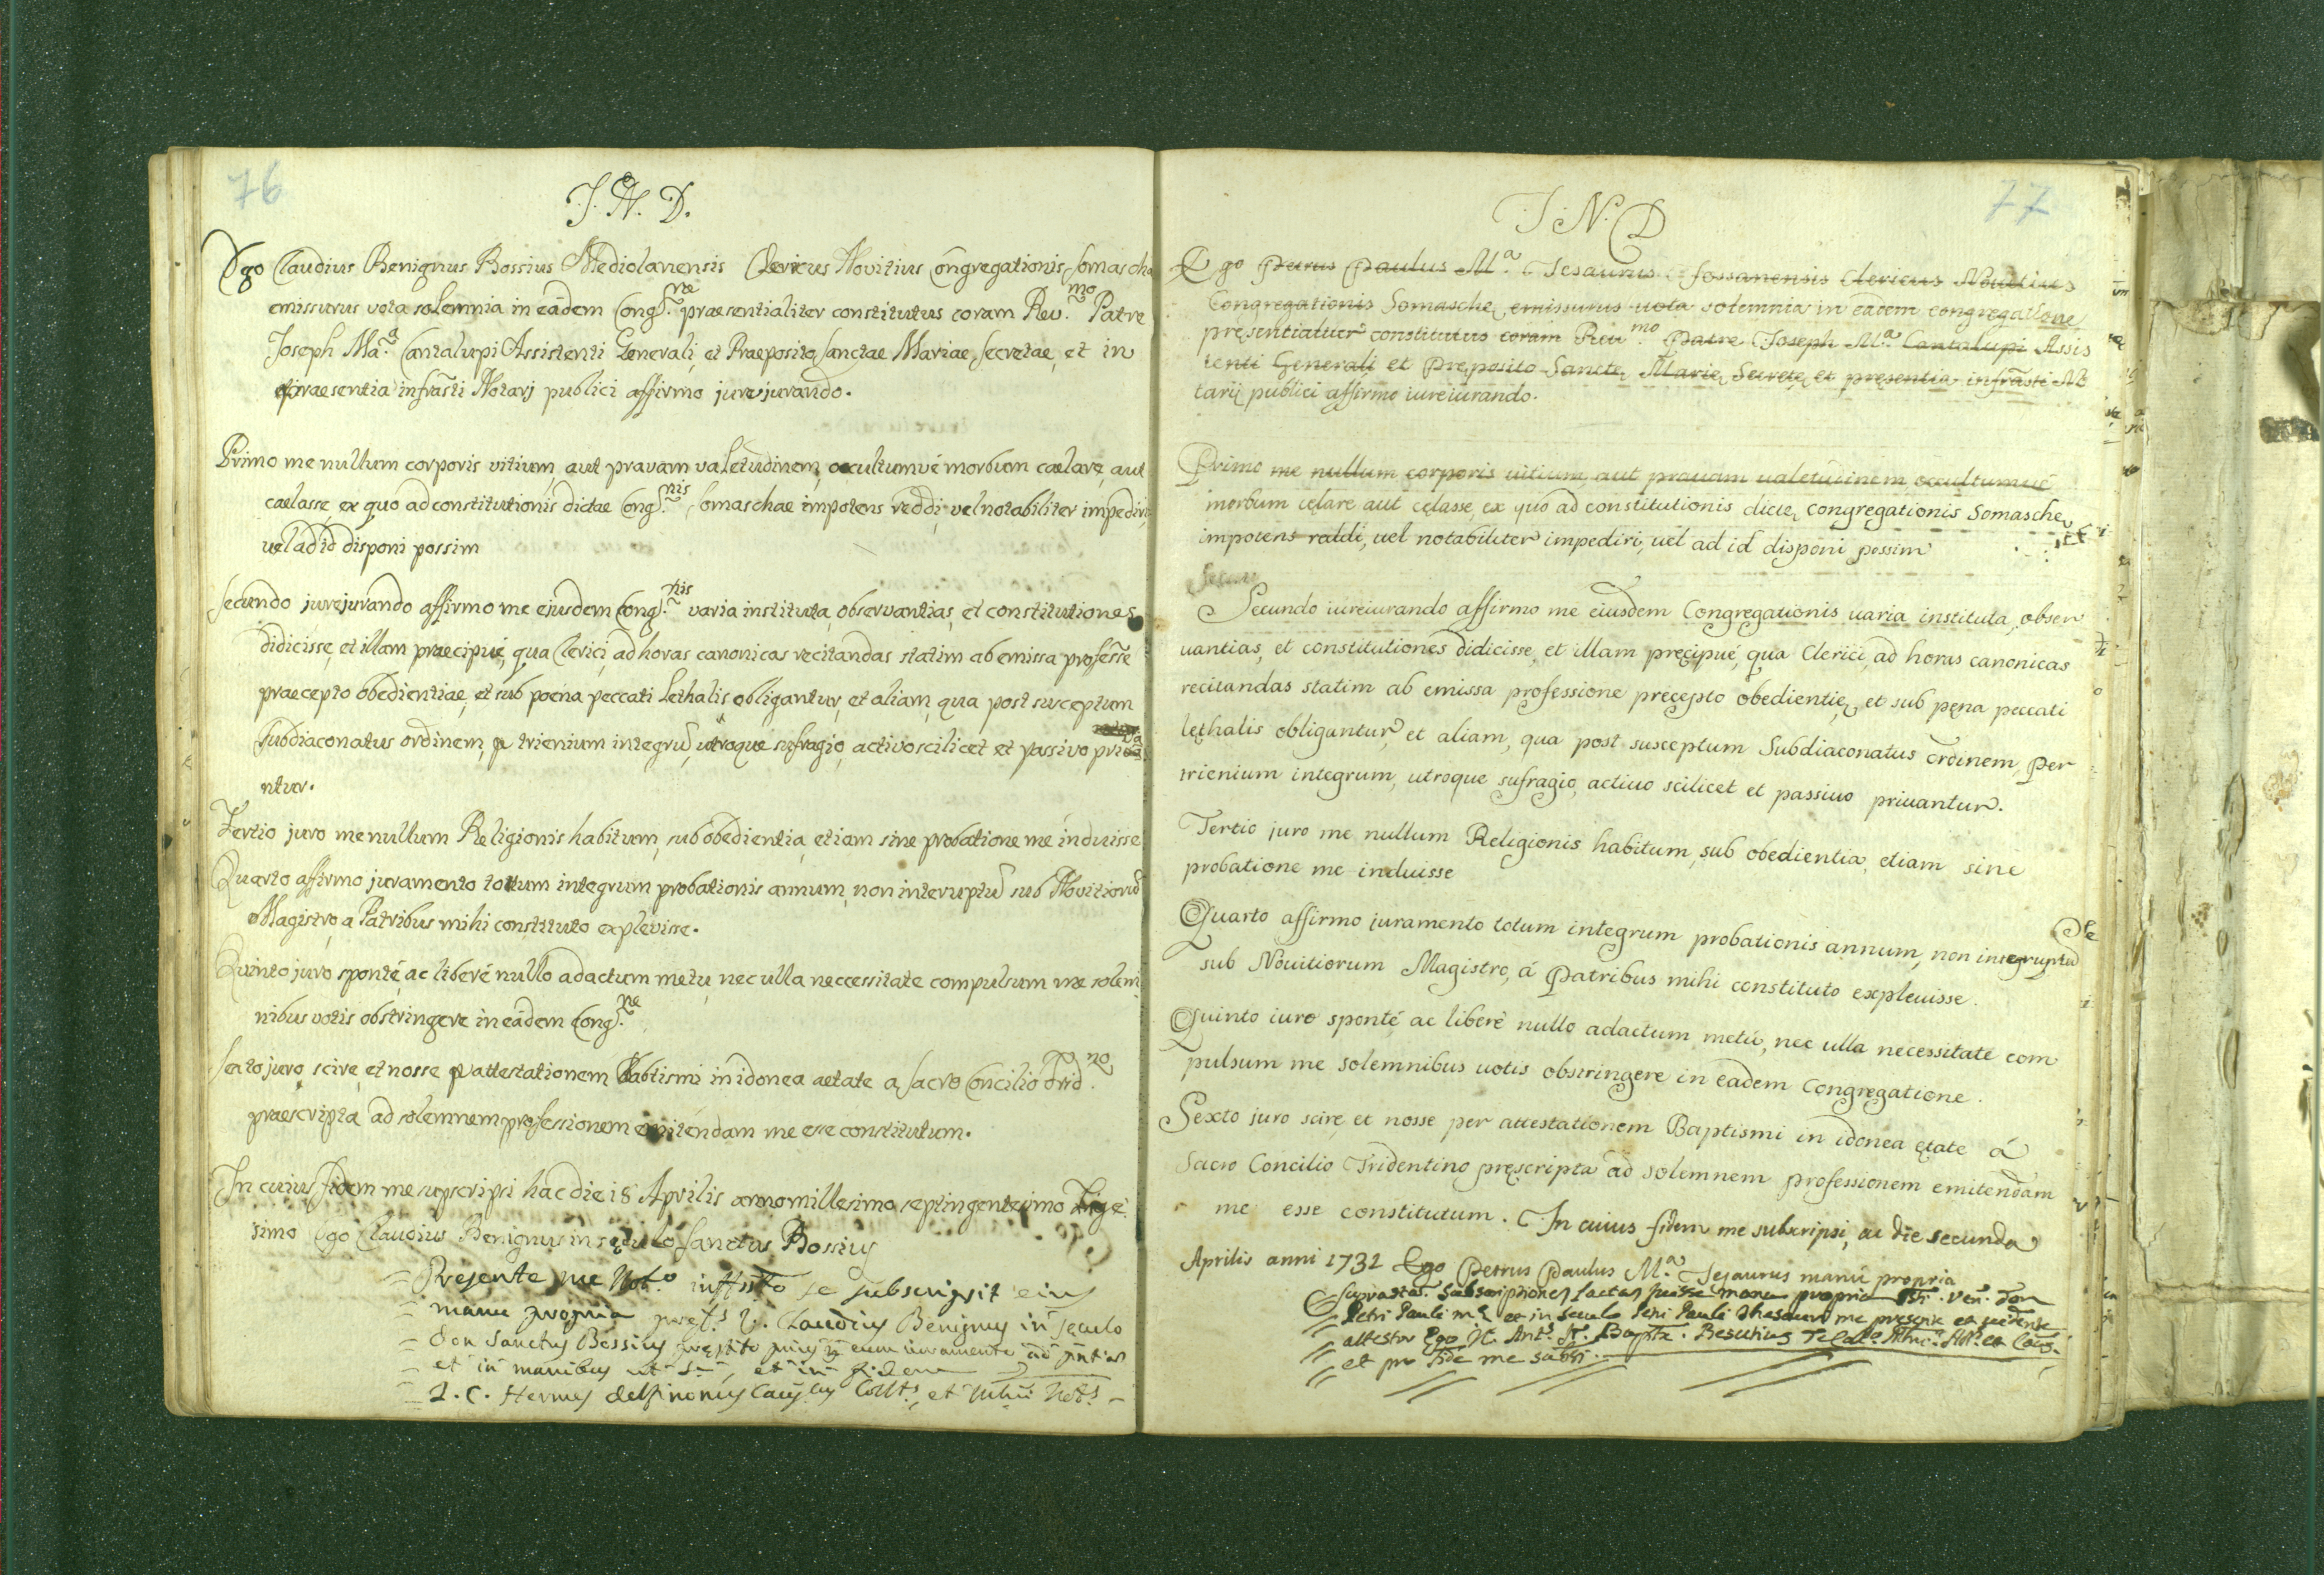 76
J. N. D.
Ego Claudius Benignus Bossius Mediolanensis Clericus Novitius Congregationis Somascha
emissurus vota solemnia in eâdem Cong.ne praesentialiter constitutus coram Rev.mo Patre
Joseph Ma.a Cantalupi Assistenti Generali, et Praeposito Sanctae Mariae, Secretae, et in
praesentia infrasti Notarj publici affirmo jurejurando.
Primo me nullum corporis vitium, aut pravam valetudinem, occultumvé morbum caelare, aut
caelasse ex quo ad constitutionis dictae Cong.nis Somaschae impotens reddi, vel notabiliter impediri,
vel ad id disponi possim
Secundo jurejurando affirmo me ejusdem Cong.nis varia instituta, observantias, et constitutiones
didicisse, et illam praecipué, qua Clerici, ad horas canonicas recitandas statim ab emissa professñe
praecepto obedientiae, et sub poena peccati Lethalis obligantur, et aliam, qua post susceptum
subdiaconatus ordinem, p trienium integrũ, utroque sufragio, activo scilicet et passivo priva
ntur.
Tertio juro me nullum Religionis habitum, sub obedientia, etiam sine probatione me induisse
Quarto affirmo juramento totum integrum probationis annum, non interuptũ sub Novitiorũ
Magistro, a Patribus mihi constituto explevisse.
Quinto juro sponté, ac liberé nullo adactum metu, nec ulla neccessitate compulsum me solem
nibus votis obstringere in eâdem Cong.ne
Sexto juro, scire, et nosse p attestationem Babtismi in idonea aetate a Sacro Concilio Trid.no
praescripta ad solemnem professionem emitendam me esse constitutum.
In cuius fidem me supscripsi hac die 18 Aprilis anno millesimo septingentesimo Trige
simo Ego Claudius Benignus in seculo Sanctus Bossius
= Presente me Not.o inffsto se subscripsit eius
= manu propria preft.s D. Claudius Benignus in seculo
= Don Sanctus Bossius
= et in manibus ut s.a, et in fidem
= J. C. Hermes Delfinonus Caus.cus Coll.s, et Not.s -
77
J. N. D
Ego Petrus Paulus M.a Tesaurus Fossanensis Clericus Novitius
Congregationis Somasche, emissurus uota solemnia in eadem congregatione,
presentialiter constitutus coram Reu.mo Patre Joseph M.a Cantalupi Assis
tenti Generali et Preposito Sancte, Marie, Secrete, et presentia infrasti No
tarij publici affirmo iureiurando.
Primo me nullum corporis uitium aut prauam ualetudinem, occultumué
morbum celare aut celasse, ex quo ad constitutionis dicte, congregationis Somasche,
impotens raddi, uel notabiliter impediri, uel ad id disponi possim
Secun
Secundo iureiurando affirmo me eiusdem Congregationis uaria instituta, obser
uantias, et constitutiones didicisse, et illam precipué, qua Clerici, ad horas canonicas
recitandas statim ab emissa professione precepto obedientie, et sub pena peccati
lethalis obligantur, et aliam, qua post susceptum Subdiaconatus ordinem, per
trienium integrum, utroque sufragio, actiuo scilicet et passiuo priuantur.
Tertio juro me nullum Religionis habitum, sub obedientia, etiam sine
probatione me induisse
Quarto affirmo iuramento totum integrum probationis annum, non interuptũ
sub Nouitiorum Magistro, á Patribus mihi constituto expleuisse.
Quinto iuro sponté ac liberé nullo adactum metú, nec ulla necessitate com
pulsum me solemnibus uotis obstringere in eadem Congregatione.
Sexto juro scire, et nosse per attestationem Baptismi in idonea etate á
Sacro Concilio Tridentino prescripta ad solemnem professionem emitendam
me esse constitutum. In cuius fidem me subscripsi, ac die secunda
Aprilis anni 1732 Ego Petrus Paulus M.a Tesaurus manú propria
Suprastas. Subscriptiones factas fuisse manu propria Ven. Don
Petri Pauli M.a et in seculo Petri Pauli Thesauri me presente et uidente
attestor Ego N. Ant.s Bapta. Besutius
et pro fide me subsi.